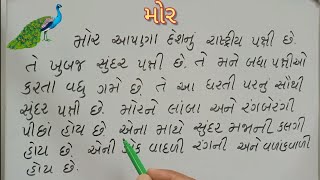 મોર
મોર આપણા દેશનું રાષ્ટ્રીય પક્ષી છે.
તે ખુબજ સુંદર પક્ષી છે. તે મને બધા પક્ષીઓ
કરતા વધુ ગમે છે. તે આ ધરતી પરનું સૌથી
સુંદર પક્ષી છે. મોરને લાંબા અને રંગબેરંગી
પીંછાં હોય છે. એના માથે સુંદર મજાની કલગી
હોય છે. એની ડોક વાદળી રંગની અને વળાંકવાળી
હોય છે.